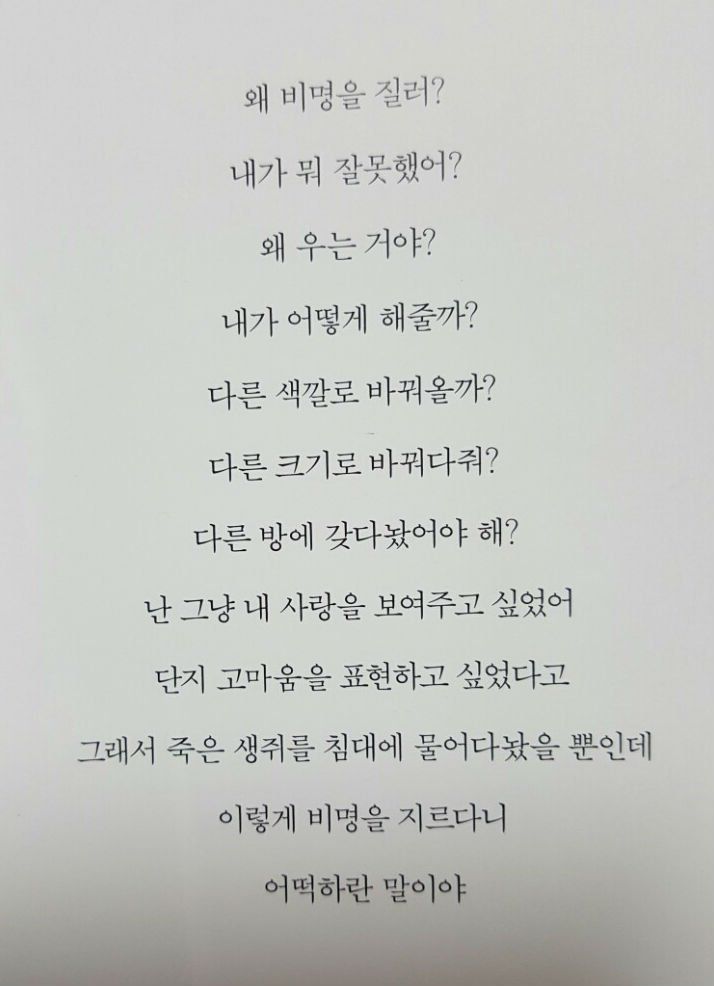 왜 비명을 질러?
내가 뭐 잘못했어?
왜 우는 거야?
내가 어떻게 해줄까?
다른 색깔로 바꿔올까?
다른 크기로 바꿔다줘?
다른 방에 갖다놨어야 해?
난 그냥 내 사랑을 보여주고 싶었어
단지 고마움을 표현하고 싶었다고
그래서 죽은 생쥐를 침대에 물어다놨을 뿐인데
이렇게 비명을 지르다니
어떡하란 말이야